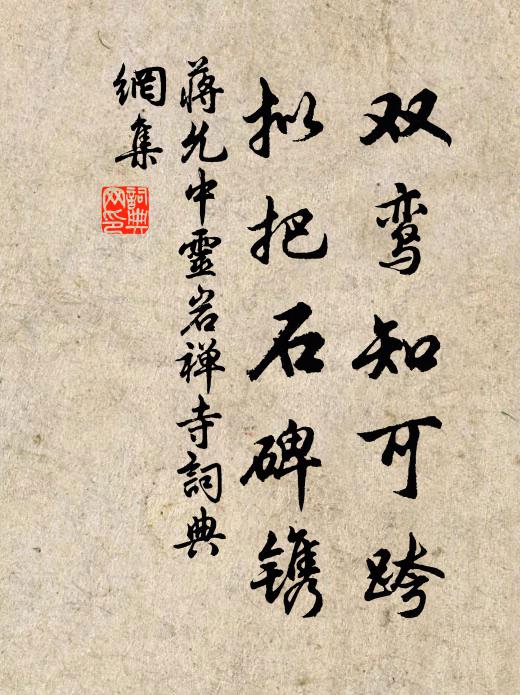 双鸾知可跨
拟把石碑镌
蒋允中靈岩禅寺詞典
網集
詞典网印